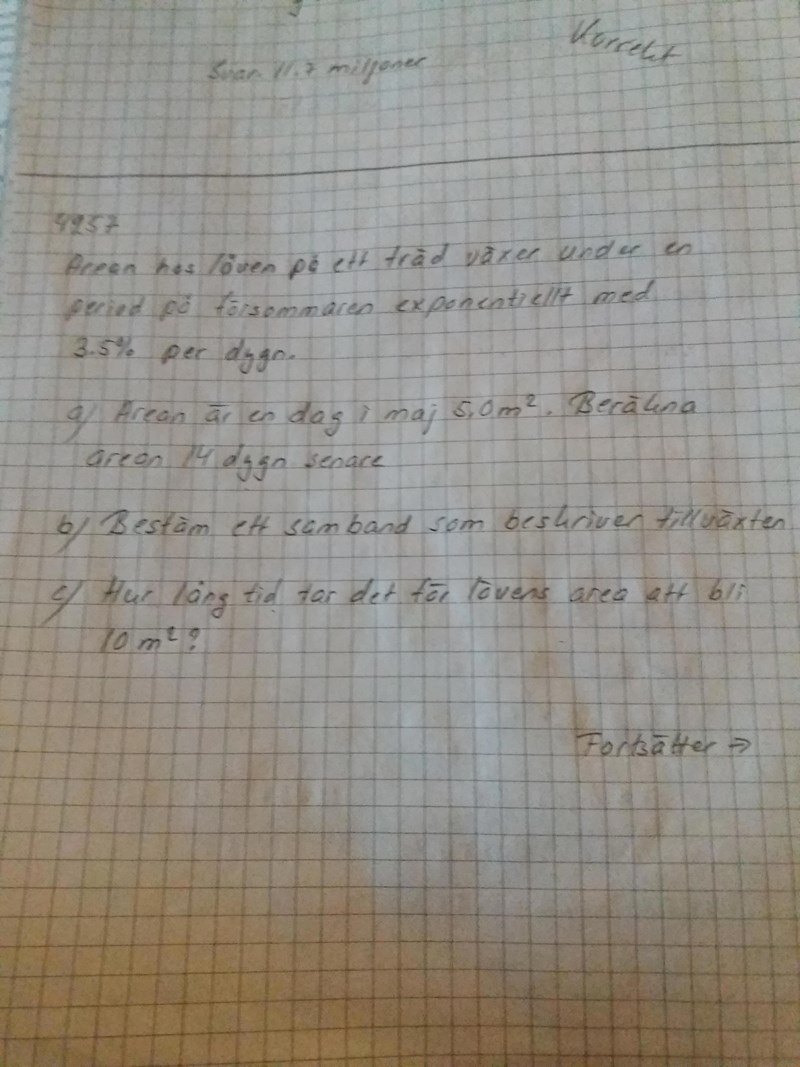 Svar. 11.7 miljoner
Korrekt
4257
Arean hos löven på ett träd växer under en
period på försommaren exponentiellt med
3.5% per dygn.
a) Arean är en dag i maj 5,0 m². Beräkna
arean 14 dygn senare
b) Bestäm ett samband som beskriver tillväxten
c) Hur lång tid tar det för lövens area att bli
10 m²?
Fortsätter →